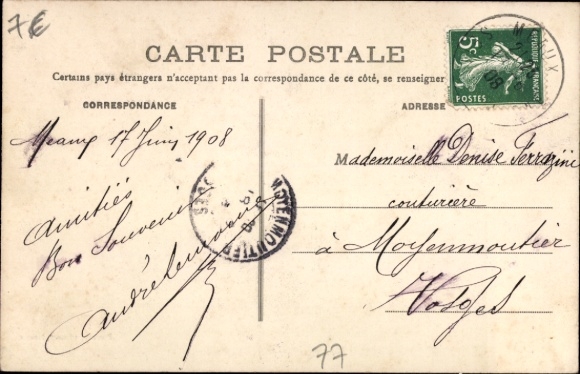 7€
CARTE POSTALE
Certains pays étrangers n'acceptant pas la correspondance de ce côté, se renseigner
CORRESPONDANCE
ADRESSE
5c
REPUBLIQUE FRANÇAISE
POSTES
08
Meaux 17 Juin 1908
Amitiés
Bon Souvenir
André
MOYENMOUTIER
Mademoiselle Denise Ferrazini
couturière
à Moyenmoutier
Vosges
77